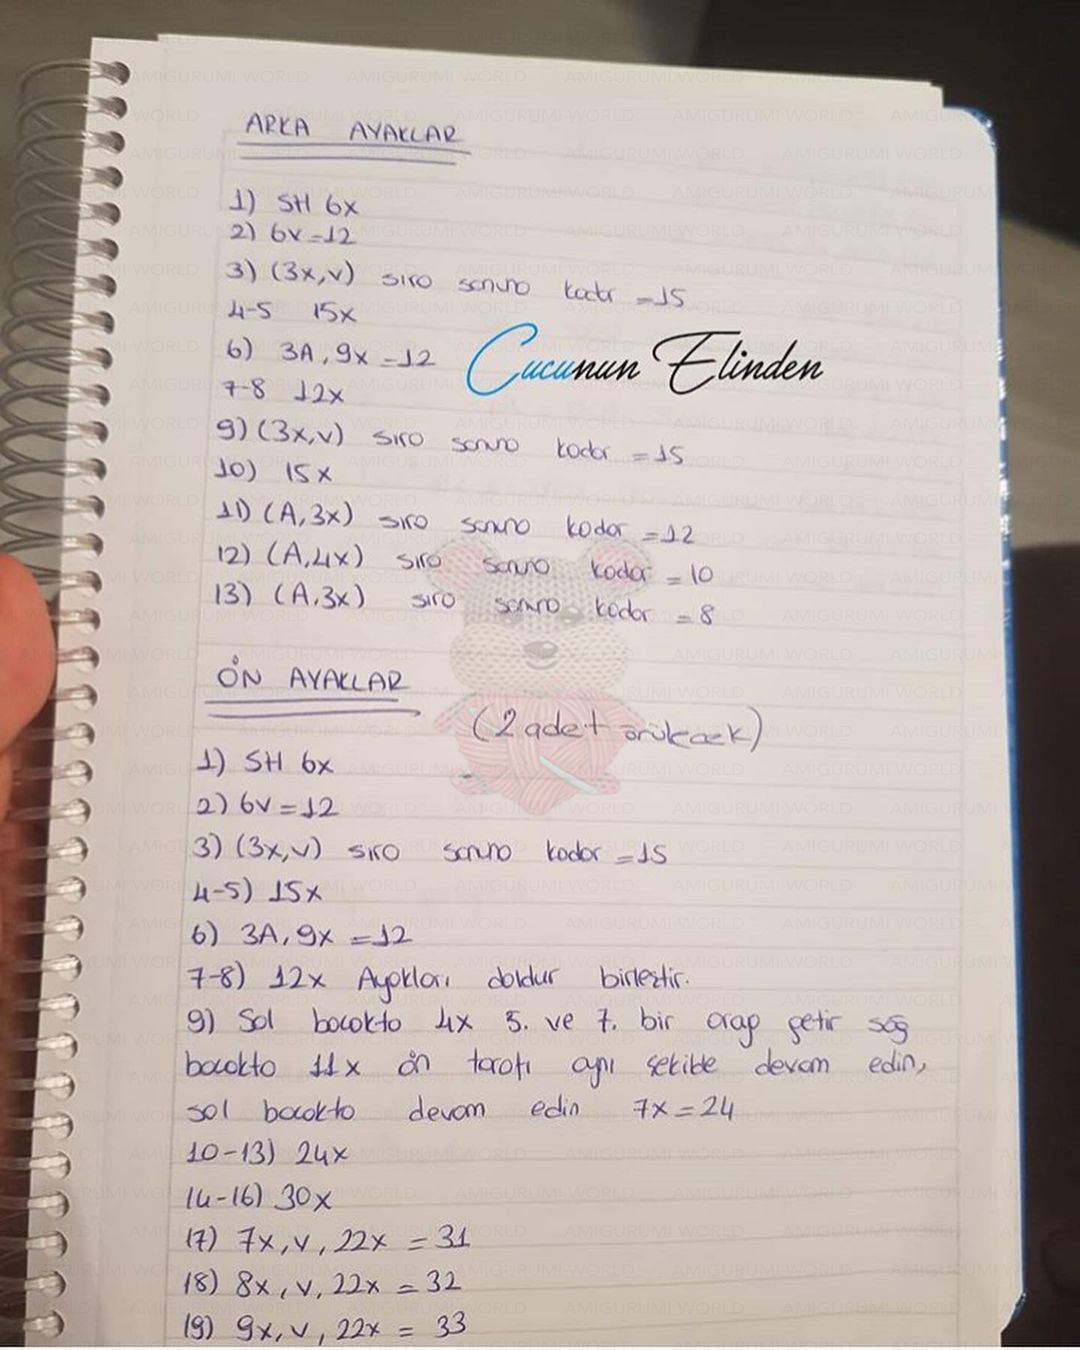 ARKA AYAKLAR
1) SH 6x
2) 6v=12
3) (3x,v) sıra sonuna kadar =15
4-5 15x
6) 3A, 9x =12
Cucunun Elinden
7-8 12x
9) (3x,v) sıra sonuna kadar =15
10) 15x
11) (A,3x) sıra sonuna kadar =12
12) (A,4x) sıra sonuna kadar =10
13) (A,3x) sıra sonuna kadar =8
ÖN AYAKLAR
(2 adet örülecek)
1) SH 6x
2) 6v=12
3) (3x,v) sıra sonuna kadar =15
4-5) 15x
6) 3A, 9x =12
7-8) 12x Ayakları doldur birleştir.
9) Sol bacakta 4x 5. ve 7. bir araya getir sağ
bacakta 11x ön tarafı aynı şekilde devam edin,
sol bacakta devam edin 7x=24
10-13) 24x
14-16) 30x
17) 7x, v, 22x = 31
18) 8x, v, 22x = 32
19) 9x, v, 22x = 33
AMIGURUMI WORLD